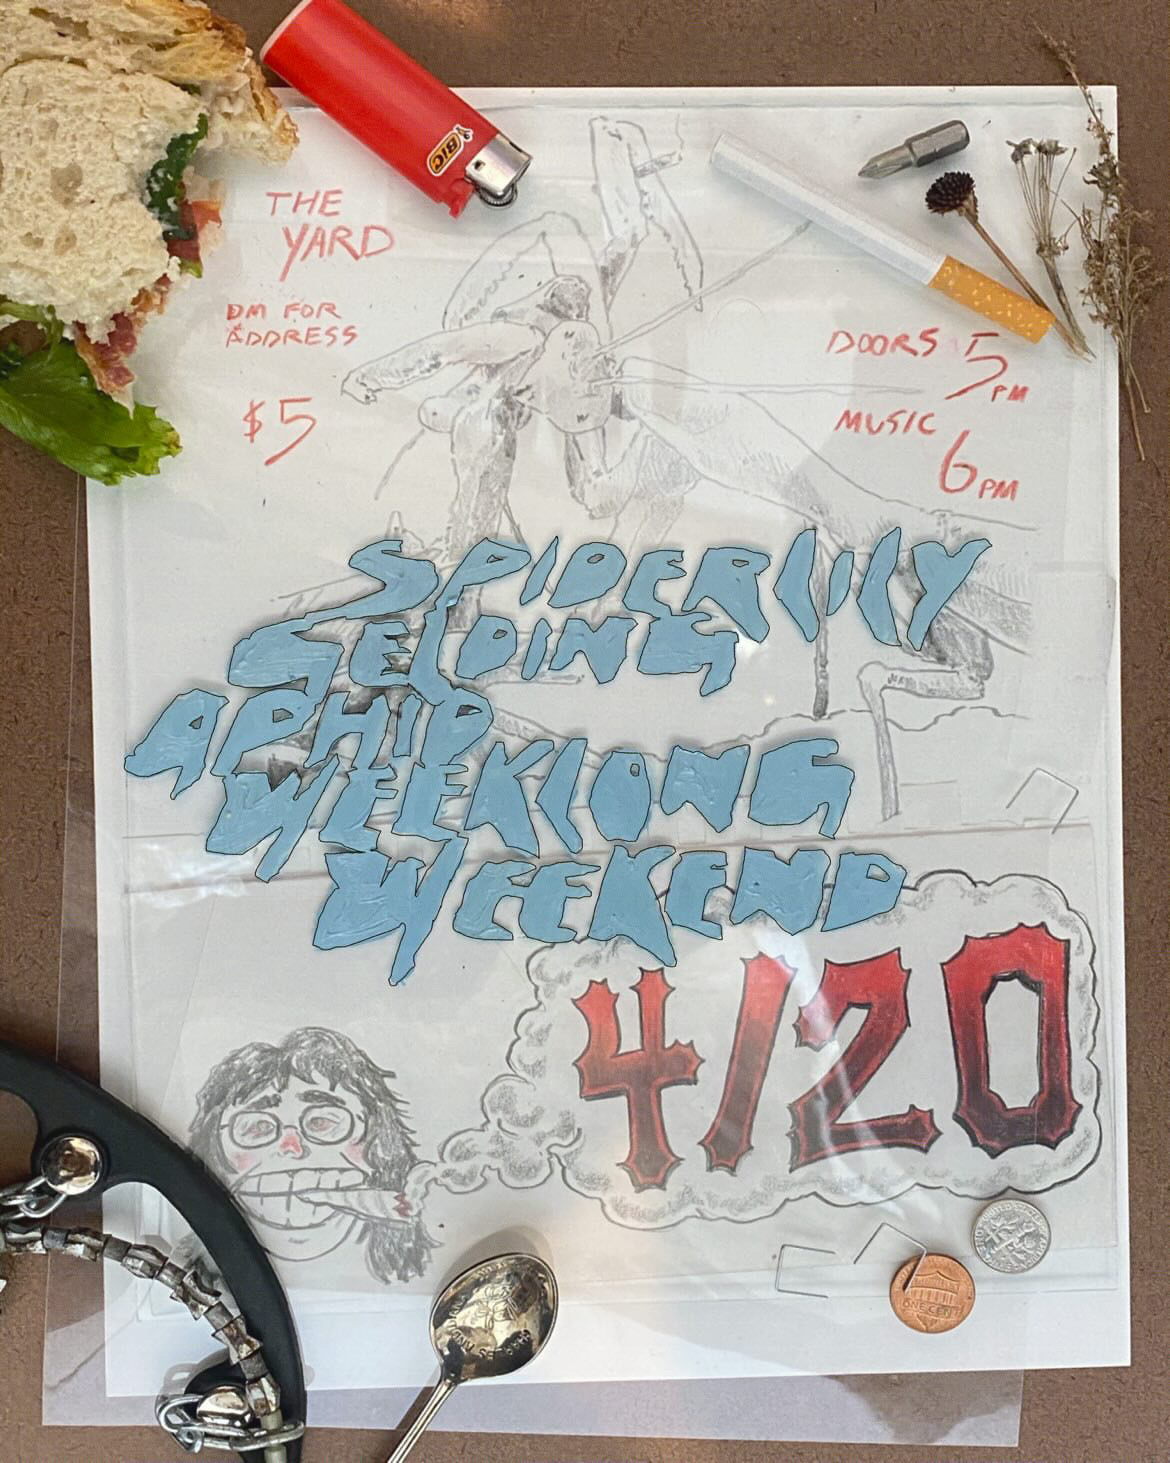 BIC
THE
YARD
DM FOR
ADDRESS
$5
DOORS 5PM
MUSIC
6PM
SPIDERLILY
GELDING
APHID
WEEKLONG
WEEKEND
4/20
ONE CENT